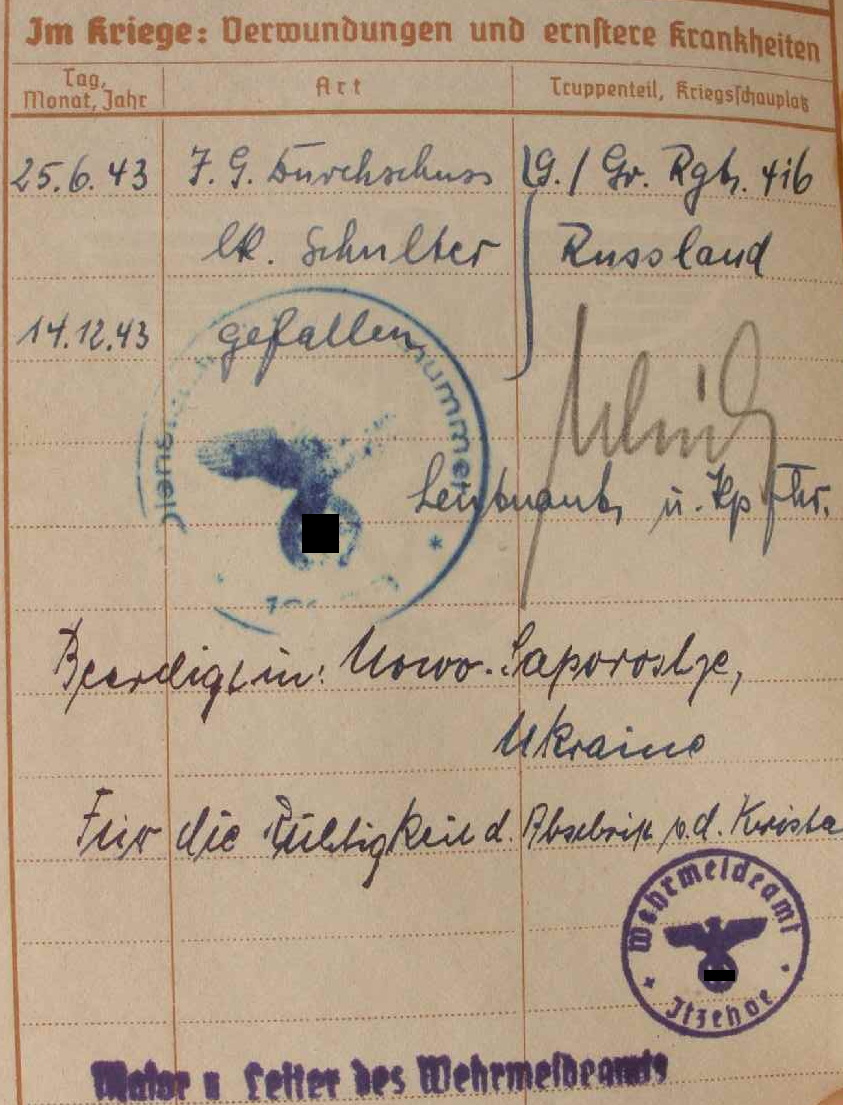 Im Kriege: Verwundungen und ernstere Krankheiten
Tag, Monat, Jahr
Art
Truppenteil, Kriegsschauplatz
25.6.43 I. G. Durchschuss
9./ Gr. Rgt. 416
lk. Schulter
Russland
14.12.43 gefallen
Leutnant u. Kp Fhr.
Beerdigt in: Nowo-Saporoshje,
Ukraine
Für die Richtigkeit d. Abschrift v.d.
Wehrmeldeamt
Itzehoe
Major u Leiter des Wehrmeldeamts